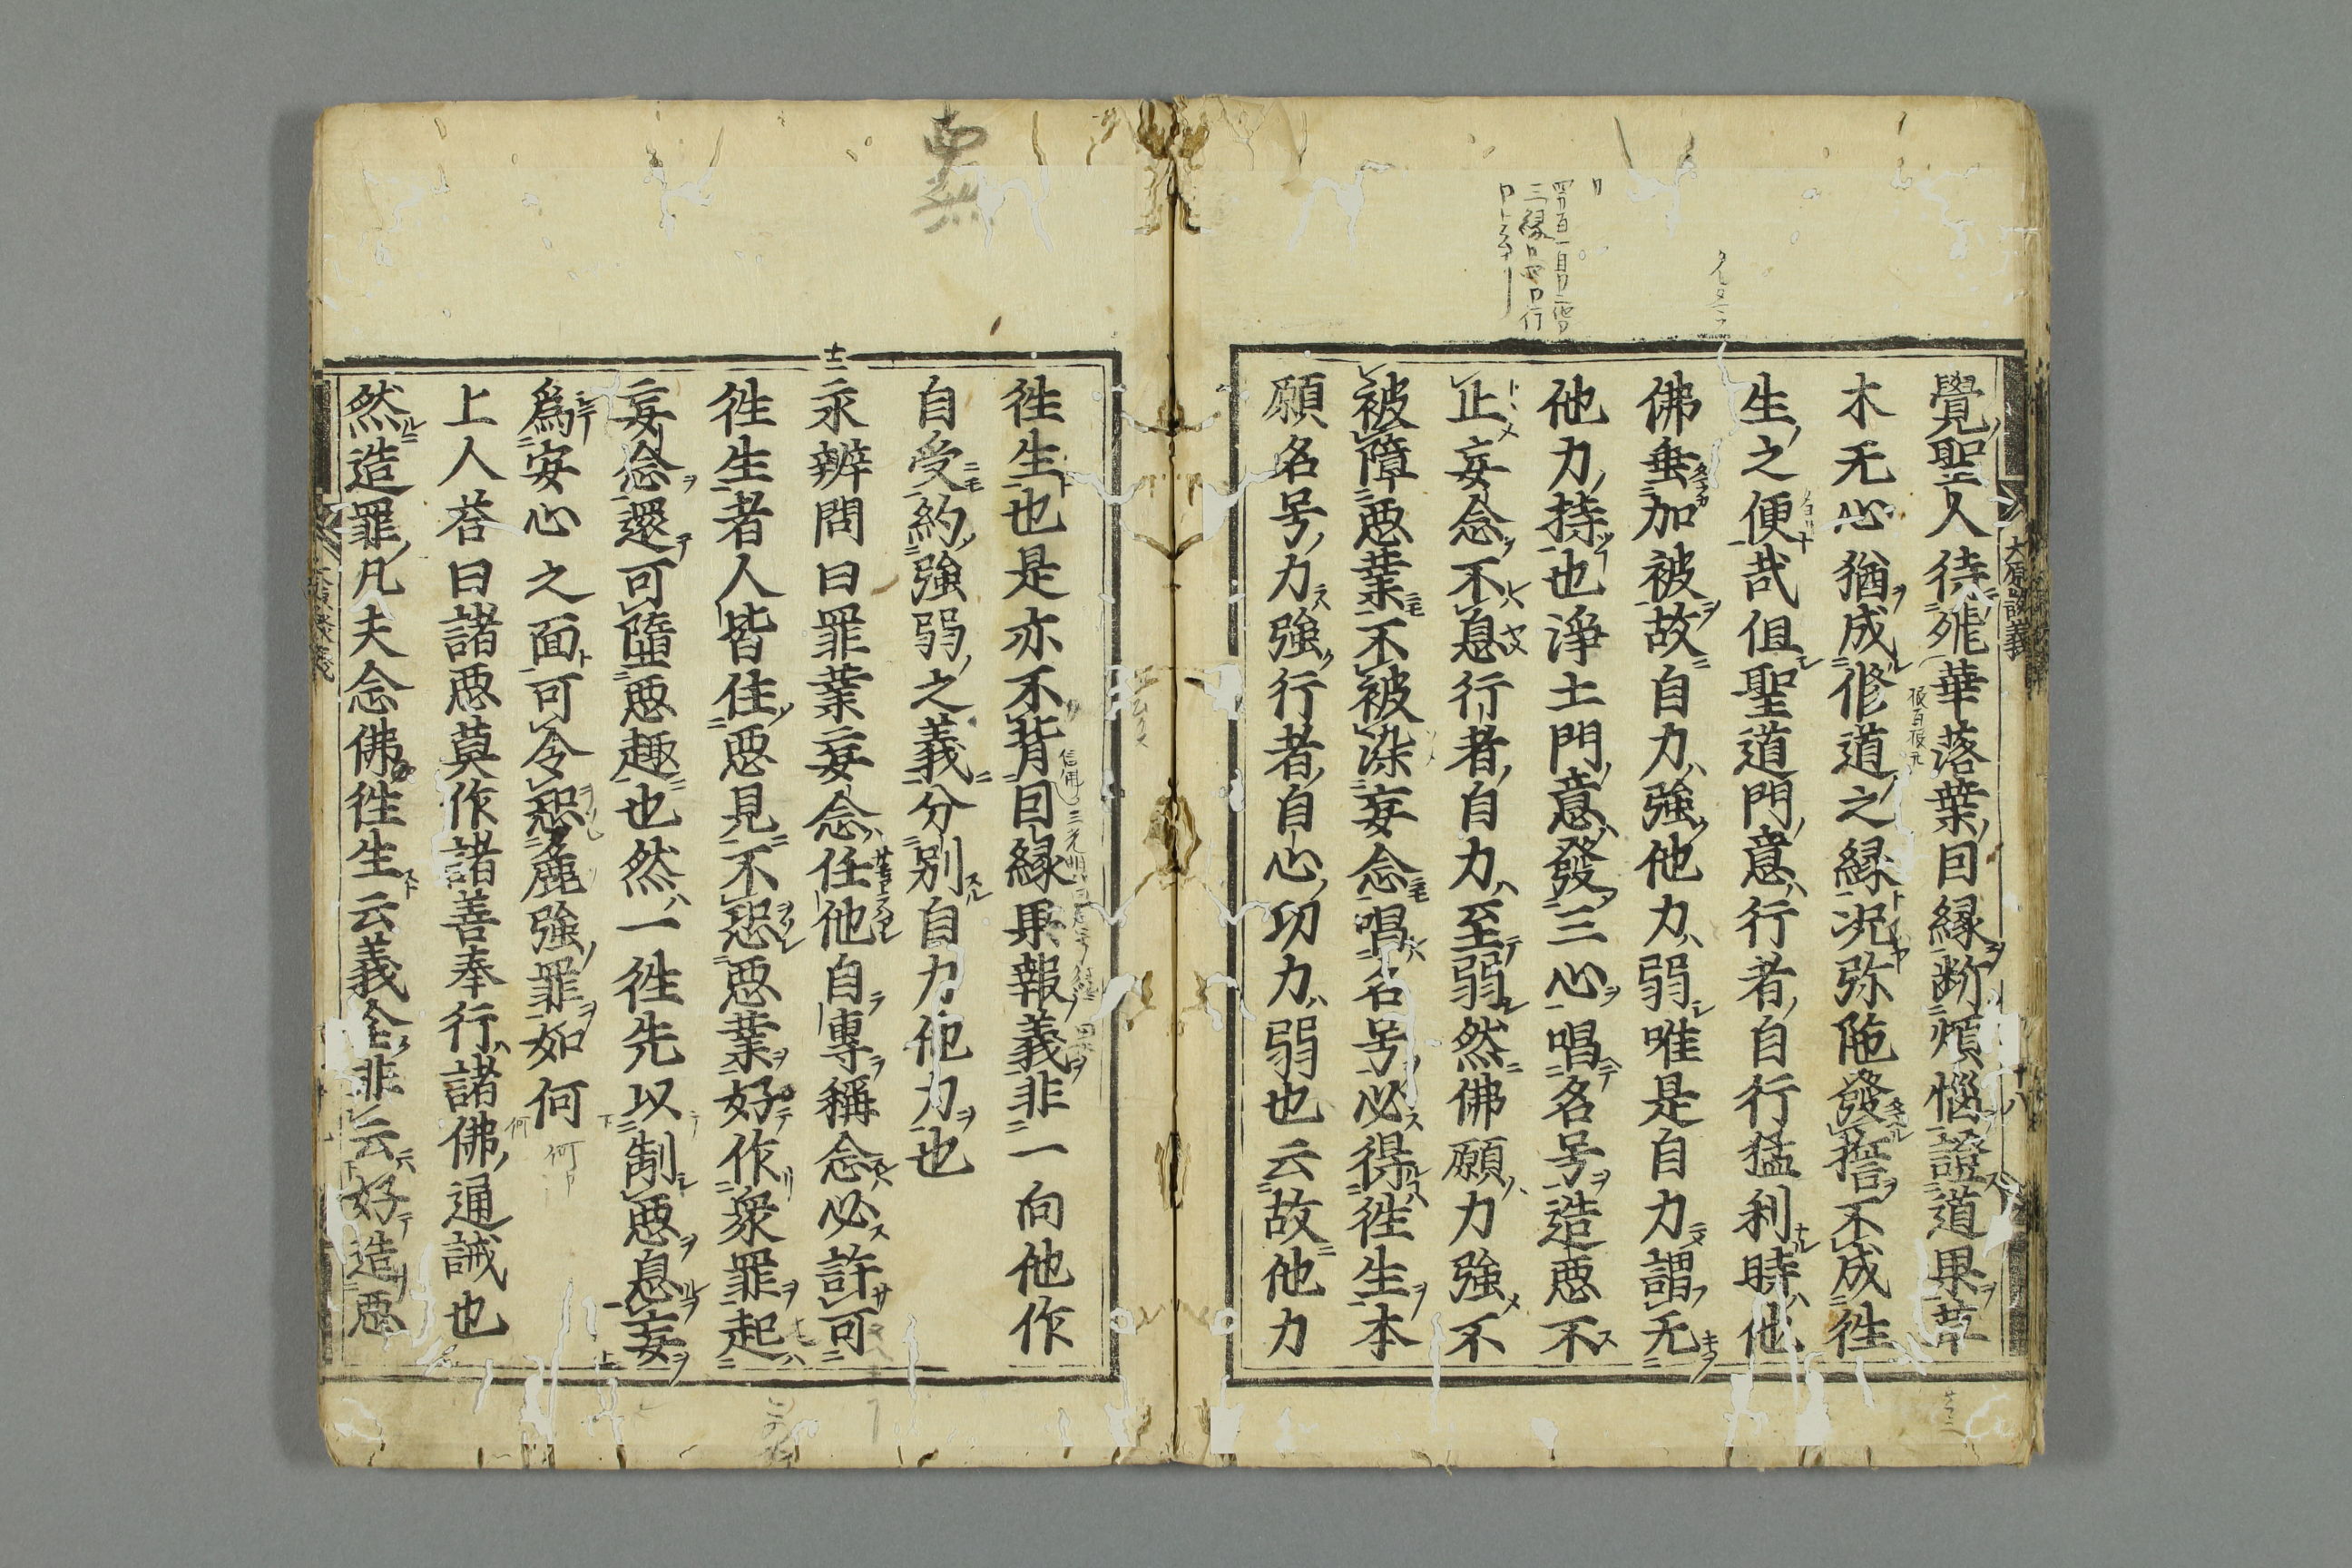 覺聖人待飛華落葉因縁断煩惱證道果草
木无心猶成修道之縁况弥陁發誓不成徃
生之便哉但聖道門意行者自行猛利時他
佛垂加被故自力強他力弱唯是自力謂无
他力持也浄土門意發三心唱名号造悪不
止妄念不息行者自力至弱然佛願力強不
被障悪業不被染妄念唱名号必得徃生本
願名号力強行者自心功力弱也云故他力
徃生也是亦不背因縁果報義非一向他作
自受約強弱之義分別自力他力也
永辨問曰罪業妄念任他自專稱念必許可
徃生者人皆住悪見不恐悪業好作衆罪起
妄念還可墮悪趣也然一徃先以制悪息妄
爲安心之面可令恐麁強罪如何
上人荅曰諸悪莫作諸善奉行諸佛通誡也
然造罪凡夫念佛徃生云義全非云好造悪
十二
大原談義
十八
南無